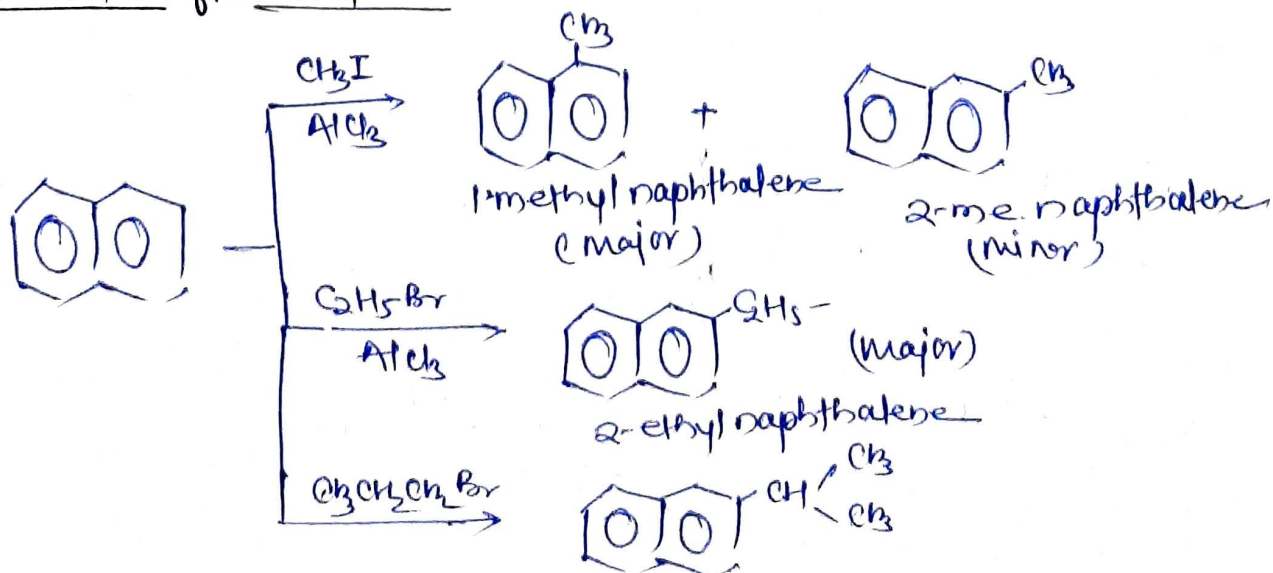 CH3
CH3I
AlCl3
+
CH3
1-methyl naphthalene
(major)
2-me. naphthalene
(minor)
C2H5-Br
AlCl3
C2H5-
(major)
2-ethyl naphthalene
CH3CH2CH2Br
CH
CH3
CH3